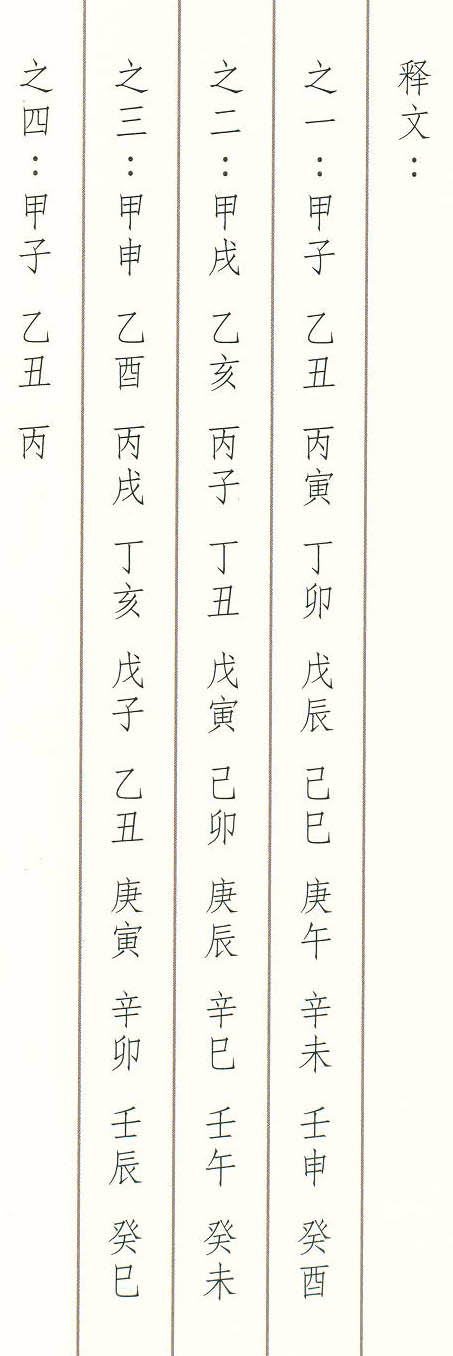 释文：
之一：甲子 乙丑 丙寅 丁卯 戊辰 己巳 庚午 辛未 壬申 癸酉
之二：甲戌 乙亥 丙子 丁丑 戊寅 己卯 庚辰 辛巳 壬午 癸未
之三：甲申 乙酉 丙戌 丁亥 戊子 乙丑 庚寅 辛卯 壬辰 癸巳
之四：甲子 乙丑 丙